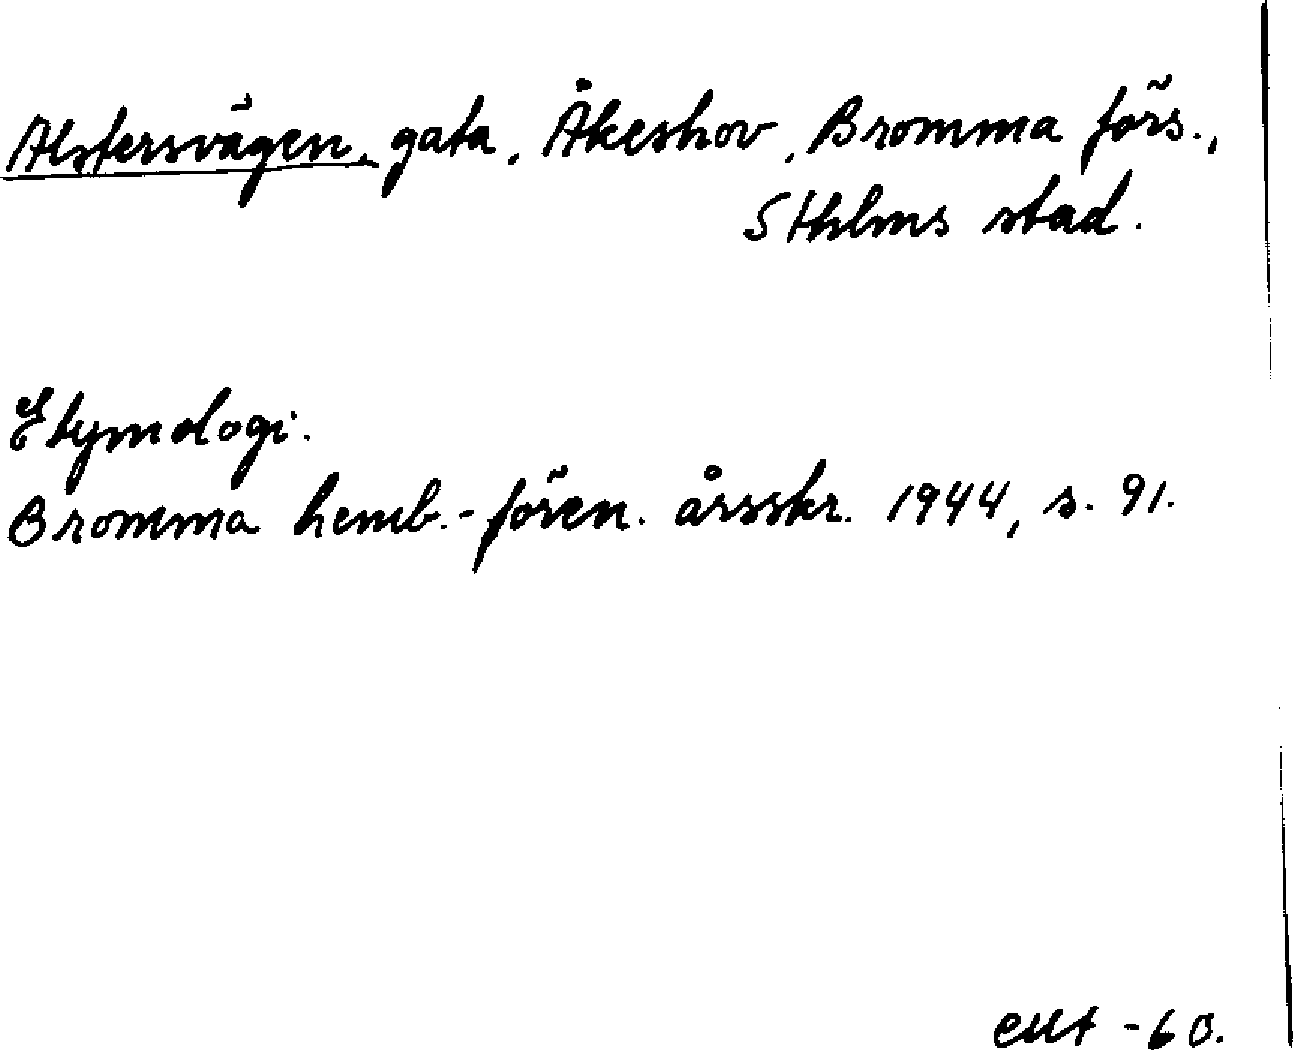 Alstersvägen, gata, Åkeshov, Bromma förs.,
Sthlms stad.
Etymologi.
Bromma hemb.-fören. årsskr. 1944, s. 91.
EMt -60.